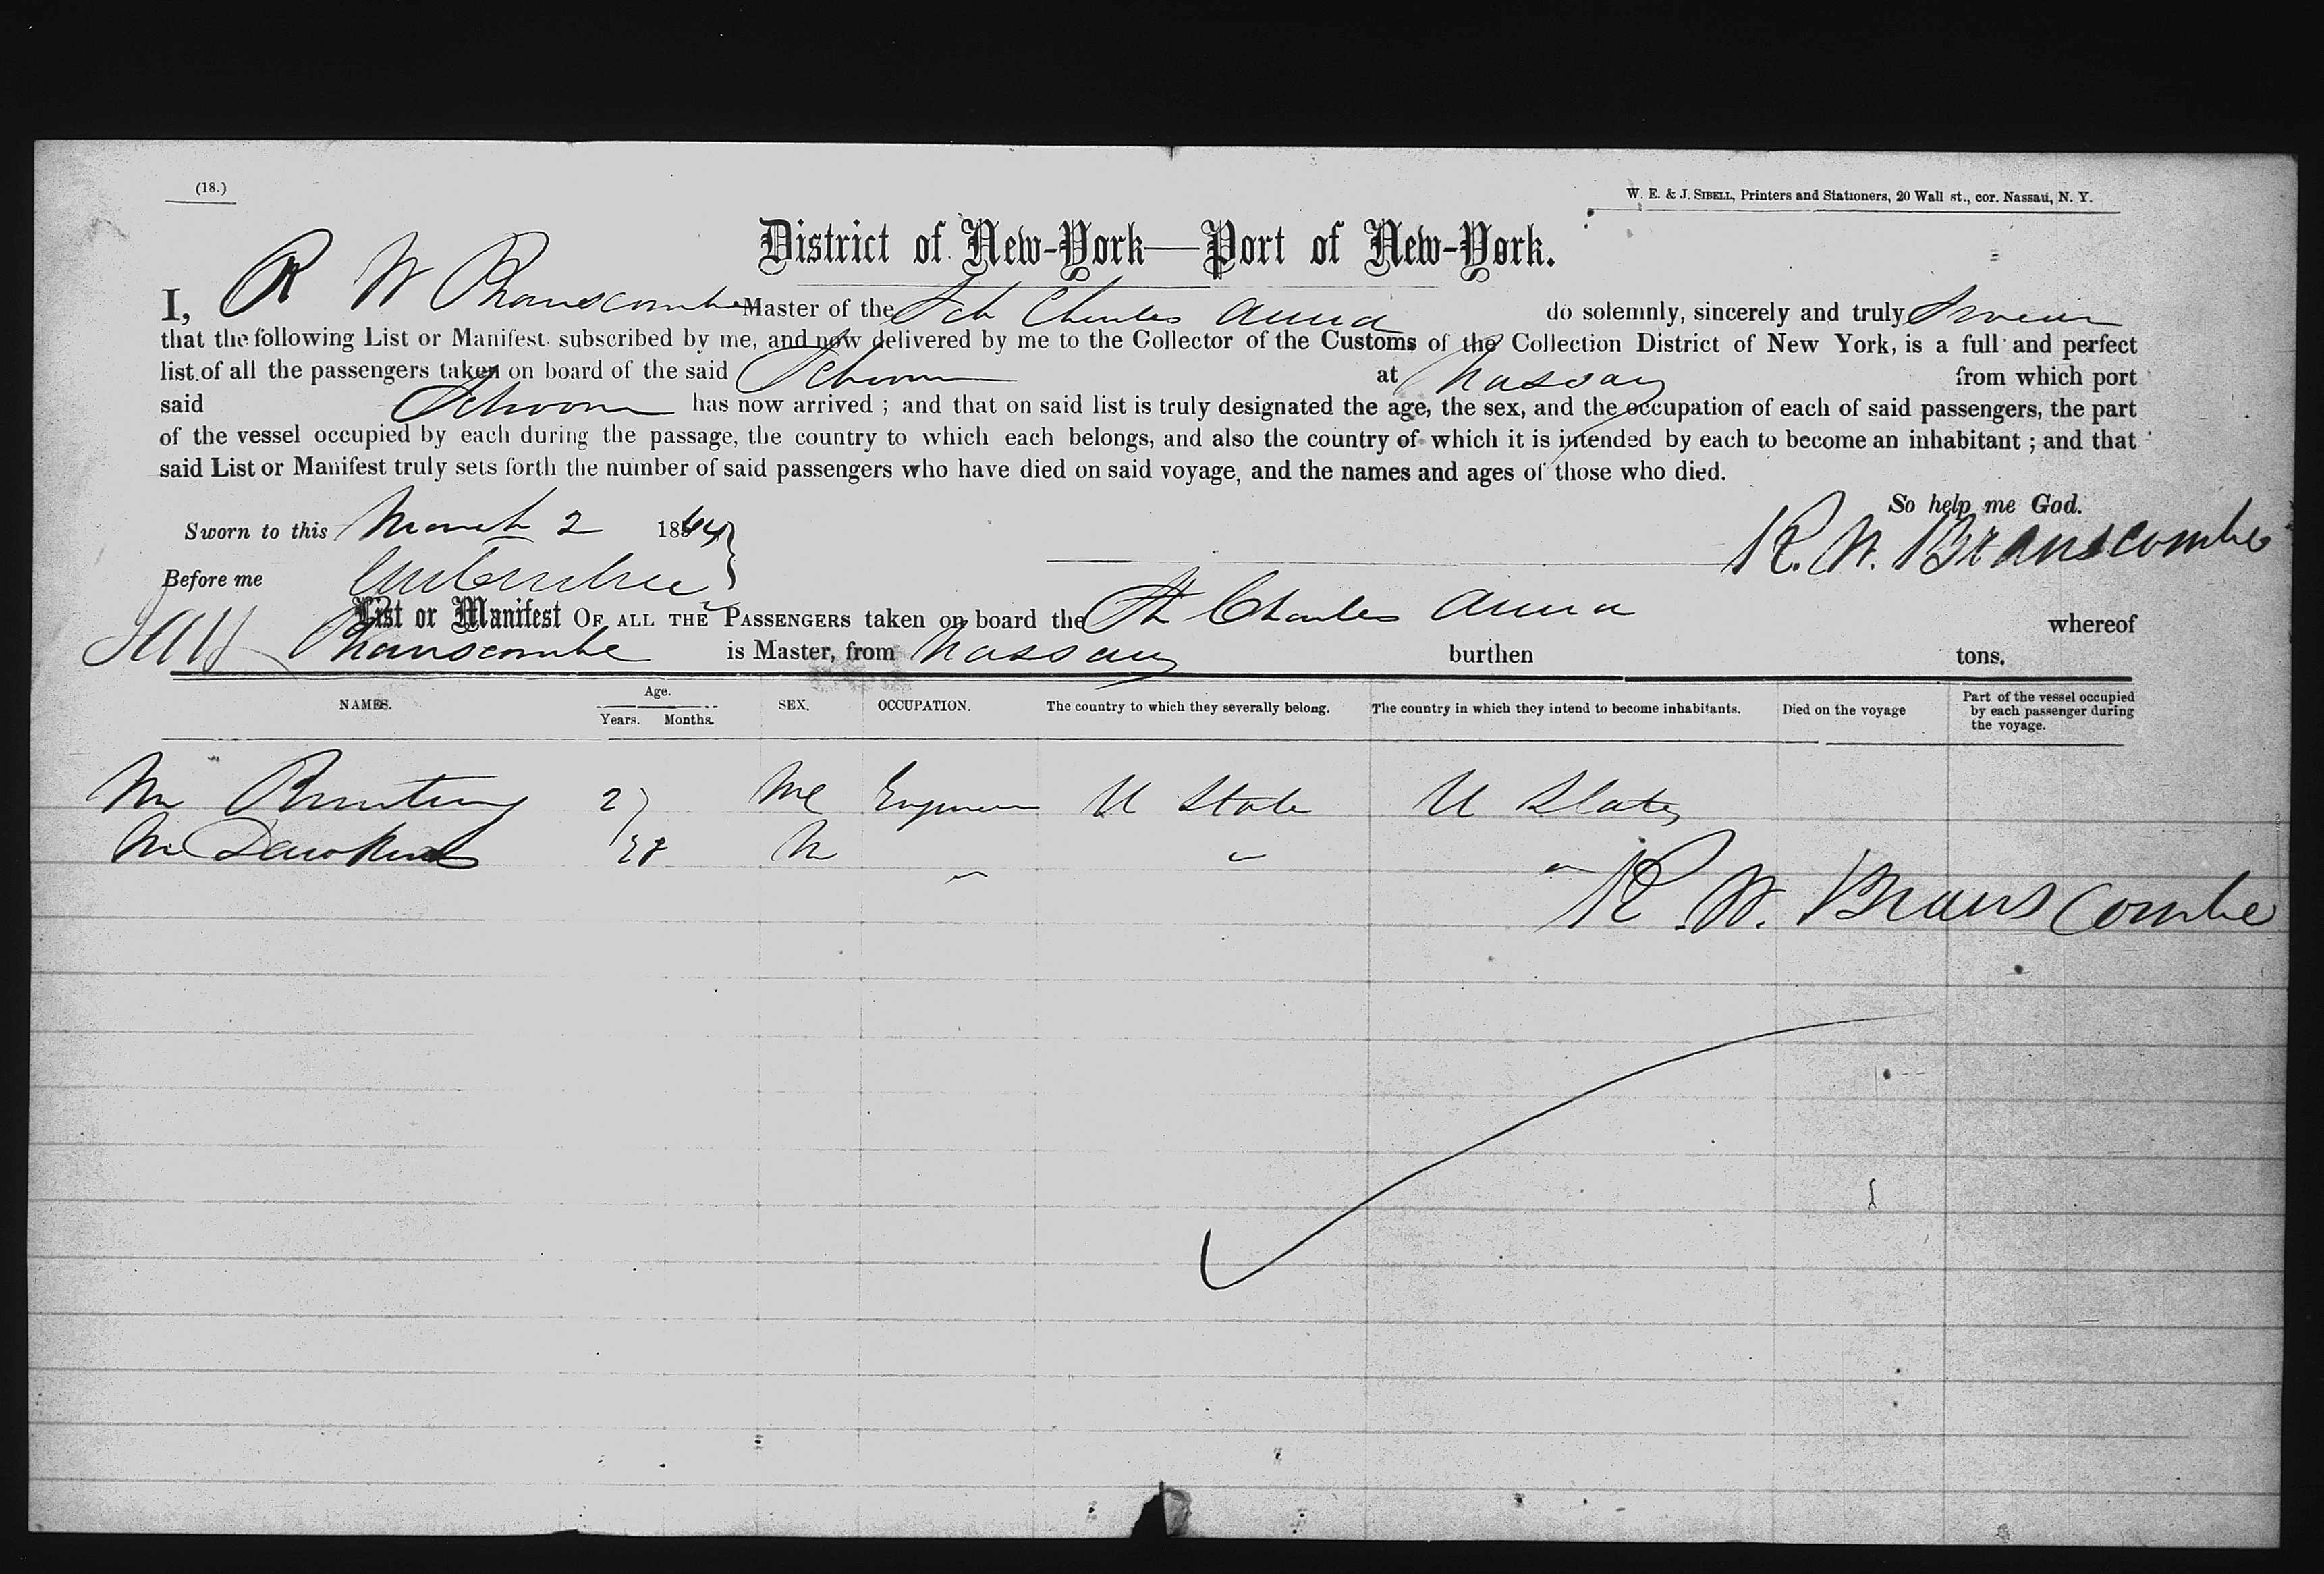 (18.)
W. E. & J. SIBELL, Printers and Stationers, 20 Wall st., cor. Nassau, N. Y.
District of New-York—Port of New-York.
I, R W Branscombe Master of the Sch Charles Anna do solemnly, sincerely and truly Swear
that the following List or Manifest subscribed by me, and now delivered by me to the Collector of the Customs of the Collection District of New York, is a full and perfect
list of all the passengers taken on board of the said Schoon at Nassau from which port
said Schoon has now arrived ; and that on said list is truly designated the age, the sex, and the occupation of each of said passengers, the part
of the vessel occupied by each during the passage, the country to which each belongs, and also the country of which it is intended by each to become an inhabitant ; and that
said List or Manifest truly sets forth the number of said passengers who have died on said voyage, and the names and ages of those who died.
So help me God.
Sworn to this March 2 1864
R. W. Branscombe
Before me
List or Manifest OF ALL THE PASSENGERS taken on board the Charles Anna whereof
Branscombe is Master, from Nassau burthen tons.
NAMES. Age. Years. Months. SEX. OCCUPATION. The country to which they severally belong. The country in which they intend to become inhabitants. Died on the voyage Part of the vessel occupied by each passenger during the voyage.
Mr Bunting 27 Me Engineer U State U States
Mr Dawkins 28 M " " "
R. W. Branscombe